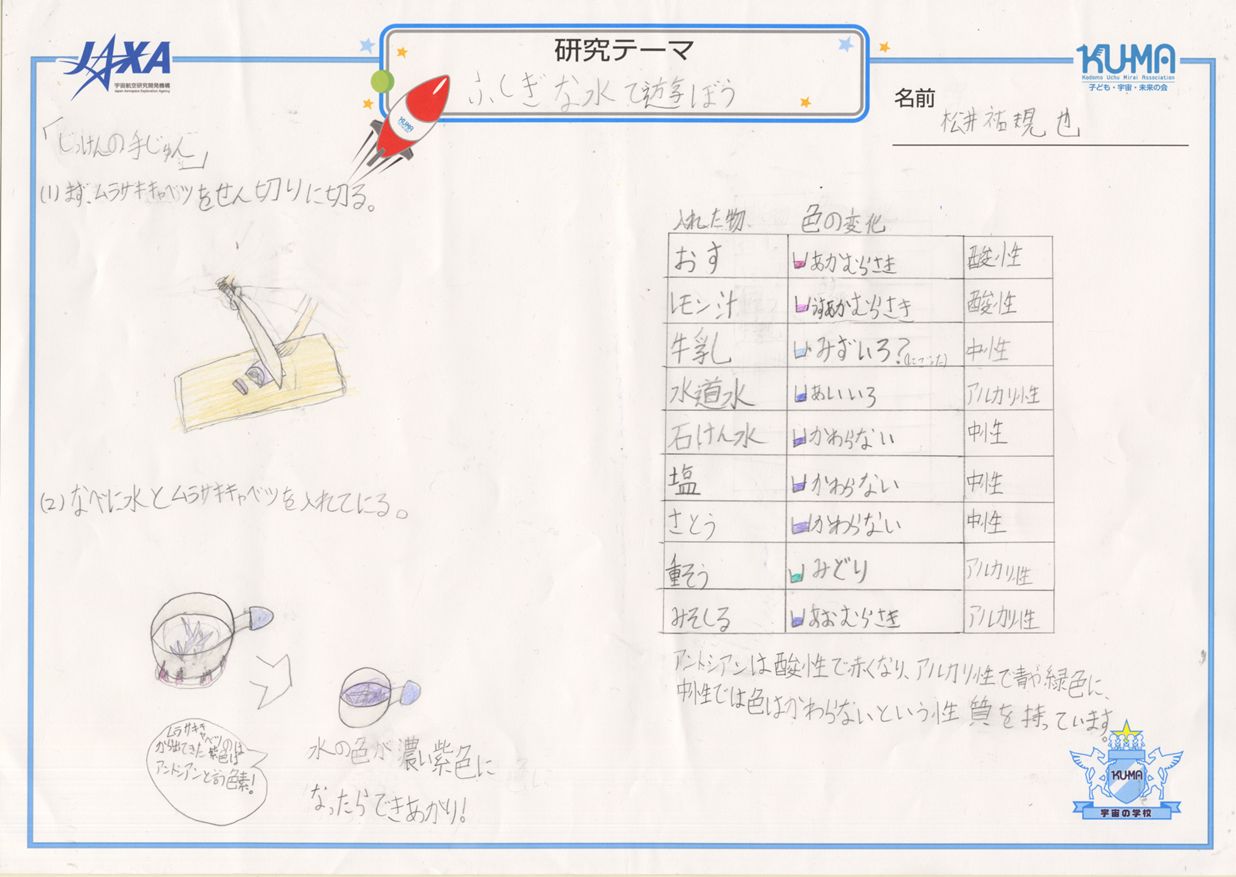 JAXA
宇宙航空研究開発機構
Japan Aerospace Exploration Agency
研究テーマ
ふしぎな水で遊ぼう
KUMA
KU-MA
Kodomo Uchu Mirai Association
子ども・宇宙・未来の会
名前
松井祐規也
「じっけんの手じゅん」
(1)まず、ムラサキキャベツをせん切りに切る。
(2)なべに水とムラサキキャベツを入れてにる。
ムラサキキャベツ
から出てきた紫色のは
アントシアンと言う色素!
水の色が濃い紫色に
なったらできあがり!
入れた物 色の変化
おす あかむらさき 酸性
レモン汁 うすあかむらさき 酸性
牛乳 みずいろ?(にごった) 中性
水道水 あいいろ アルカリ性
石けん水 かわらない 中性
塩 かわらない 中性
さとう かわらない 中性
重そう みどり アルカリ性
みそしる あおむらさき アルカリ性
アントシアンは酸性で赤くなり、アルカリ性で青や緑色に、
中性では色はかわらないという性質を持っています。
KUMA
宇宙の学校